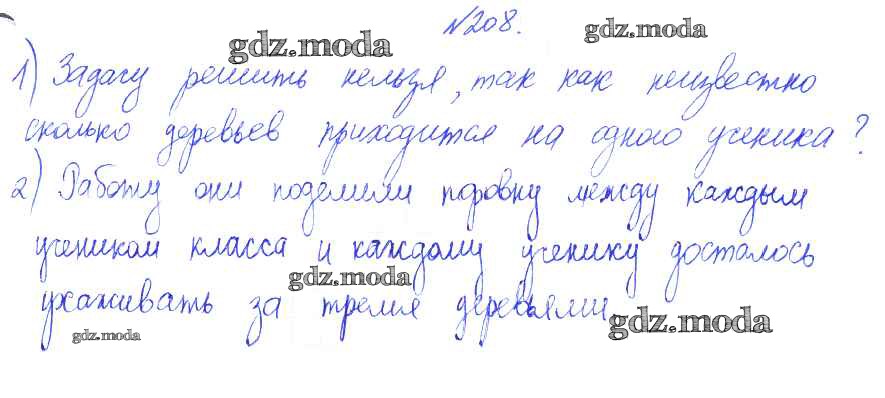 №208.
gdz.moda
gdz.moda
1) Задачу решить нельзя, так как неизвестно
сколько деревьев приходится на одного ученика?
2) Работу они поделили поровну между каждым
учеником класса и каждому ученику досталось
gdz.moda
ухаживать за тремя деревьями.
gdz.moda
gdz.moda